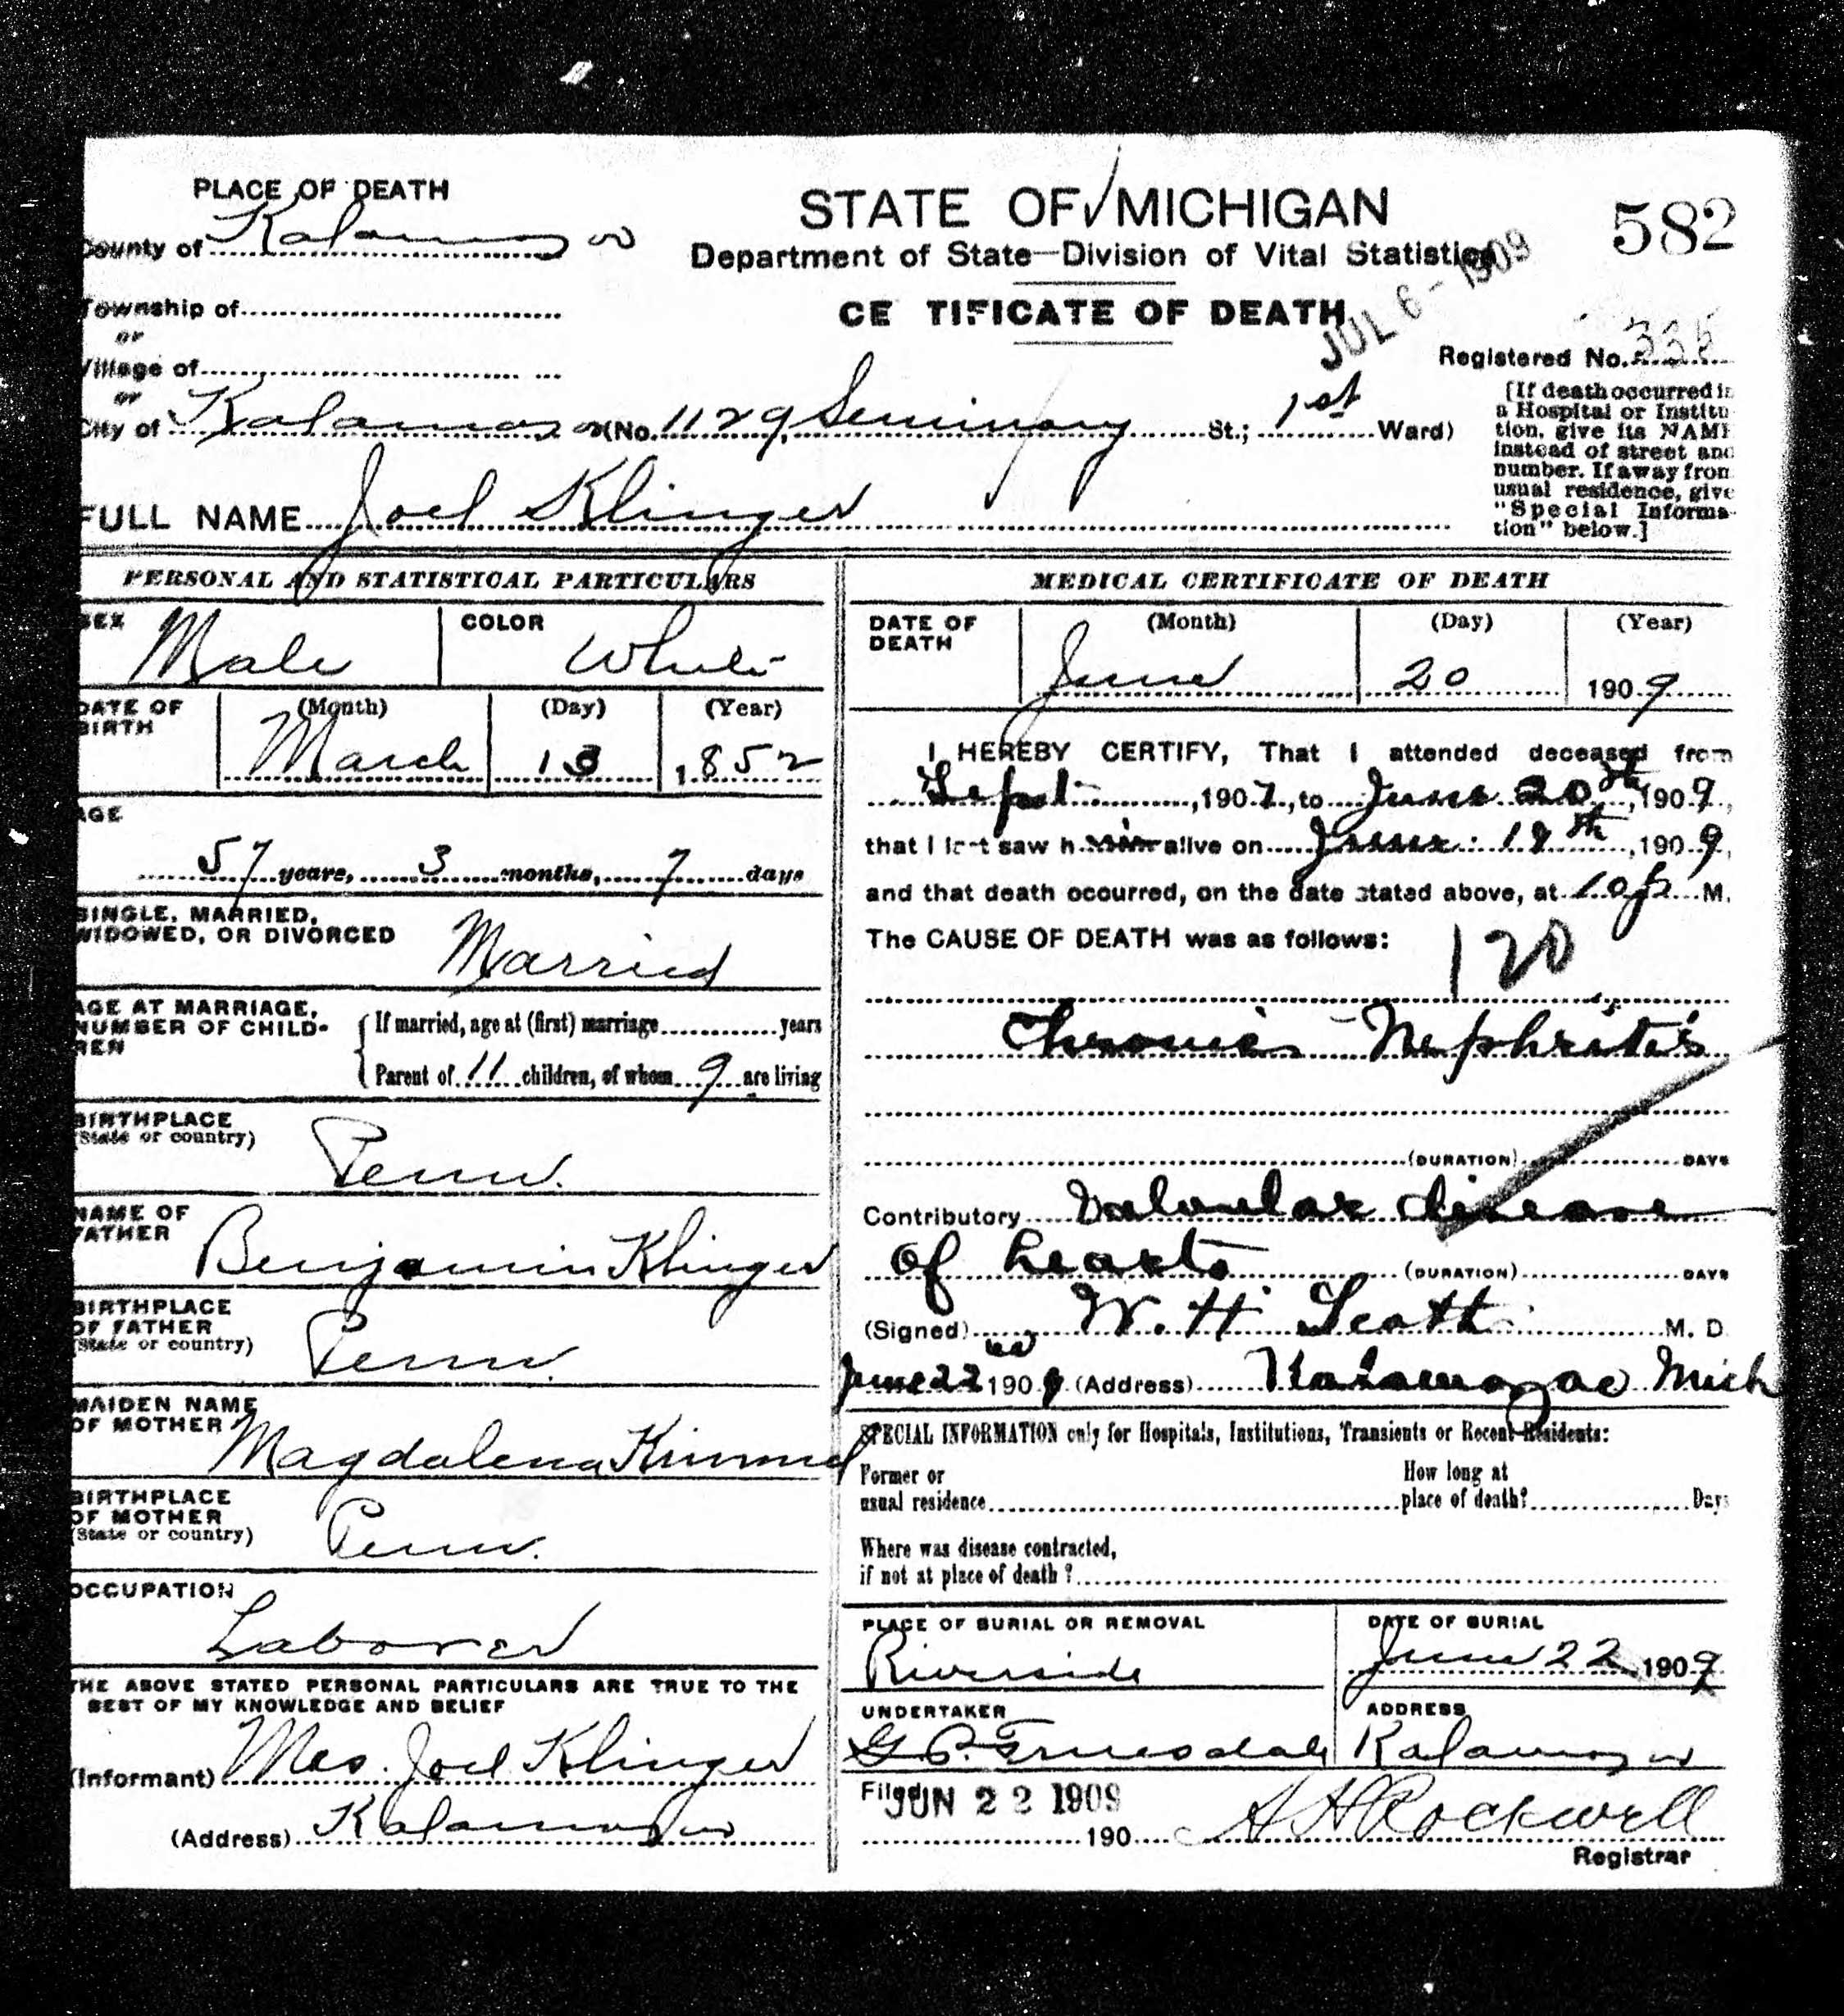 PLACE OF DEATH
STATE OF MICHIGAN
582
County of Kalamazoo
Department of State—Division of Vital Statistics
JUL 6 - 1909
Township of
CE TIFICATE OF DEATH
or
Village of
Registered No.
or
City of Kalamazoo (No. 1129 Seminary St.; 1st Ward)
[If death occurred in
a Hospital or Institu-
tion, give its NAME
instead of street and
number. If away from
usual residence, give
"Special Informa-
tion" below.]
FULL NAME Joel Klinger
PERSONAL AND STATISTICAL PARTICULARS
SEX Male
COLOR White
DATE OF BIRTH
(Month) (Day) (Year)
March 13 1852
AGE
57 years, 3 months, 7 days
SINGLE, MARRIED,
WIDOWED, OR DIVORCED
Married
AGE AT MARRIAGE,
NUMBER OF CHILD-
REN
If married, age at (first) marriage years
Parent of 11 children, of whom 9 are living
BIRTHPLACE
(State or country)
Penn.
NAME OF
FATHER
Benjamin Klinger
BIRTHPLACE
OF FATHER
(State or country)
Penn.
MAIDEN NAME
OF MOTHER
Magdalena Kimmel
BIRTHPLACE
OF MOTHER
(State or country)
Penn.
OCCUPATION
Laborer
THE ABOVE STATED PERSONAL PARTICULARS ARE TRUE TO THE
BEST OF MY KNOWLEDGE AND BELIEF
(Informant) Mrs. Joel Klinger
(Address) Kalamazoo
MEDICAL CERTIFICATE OF DEATH
DATE OF DEATH
(Month) (Day) (Year)
June 20 1909
I HEREBY CERTIFY, That I attended deceased from
Sept 1907, to June 20th, 1909,
that I last saw him alive on June 19th, 1909,
and that death occurred, on the date stated above, at 10 p M.
The CAUSE OF DEATH was as follows:
120
Chronic Nephritis
(DURATION) DAYS
Contributory Valvular disease
of heart
(DURATION) DAYS
(Signed) W. H. Scott M. D.
June 22nd 1909 (Address) Kalamazoo Mich
SPECIAL INFORMATION only for Hospitals, Institutions, Transients or Recent Residents:
Former or
usual residence
How long at
place of death? Days
Where was disease contracted,
if not at place of death?
PLACE OF BURIAL OR REMOVAL
Riverside
DATE OF BURIAL
June 22 1909
UNDERTAKER
G. P. Truesdale
ADDRESS
Kalamazoo
Filed JUN 22 1909
190
A H Rockwell
Registrar